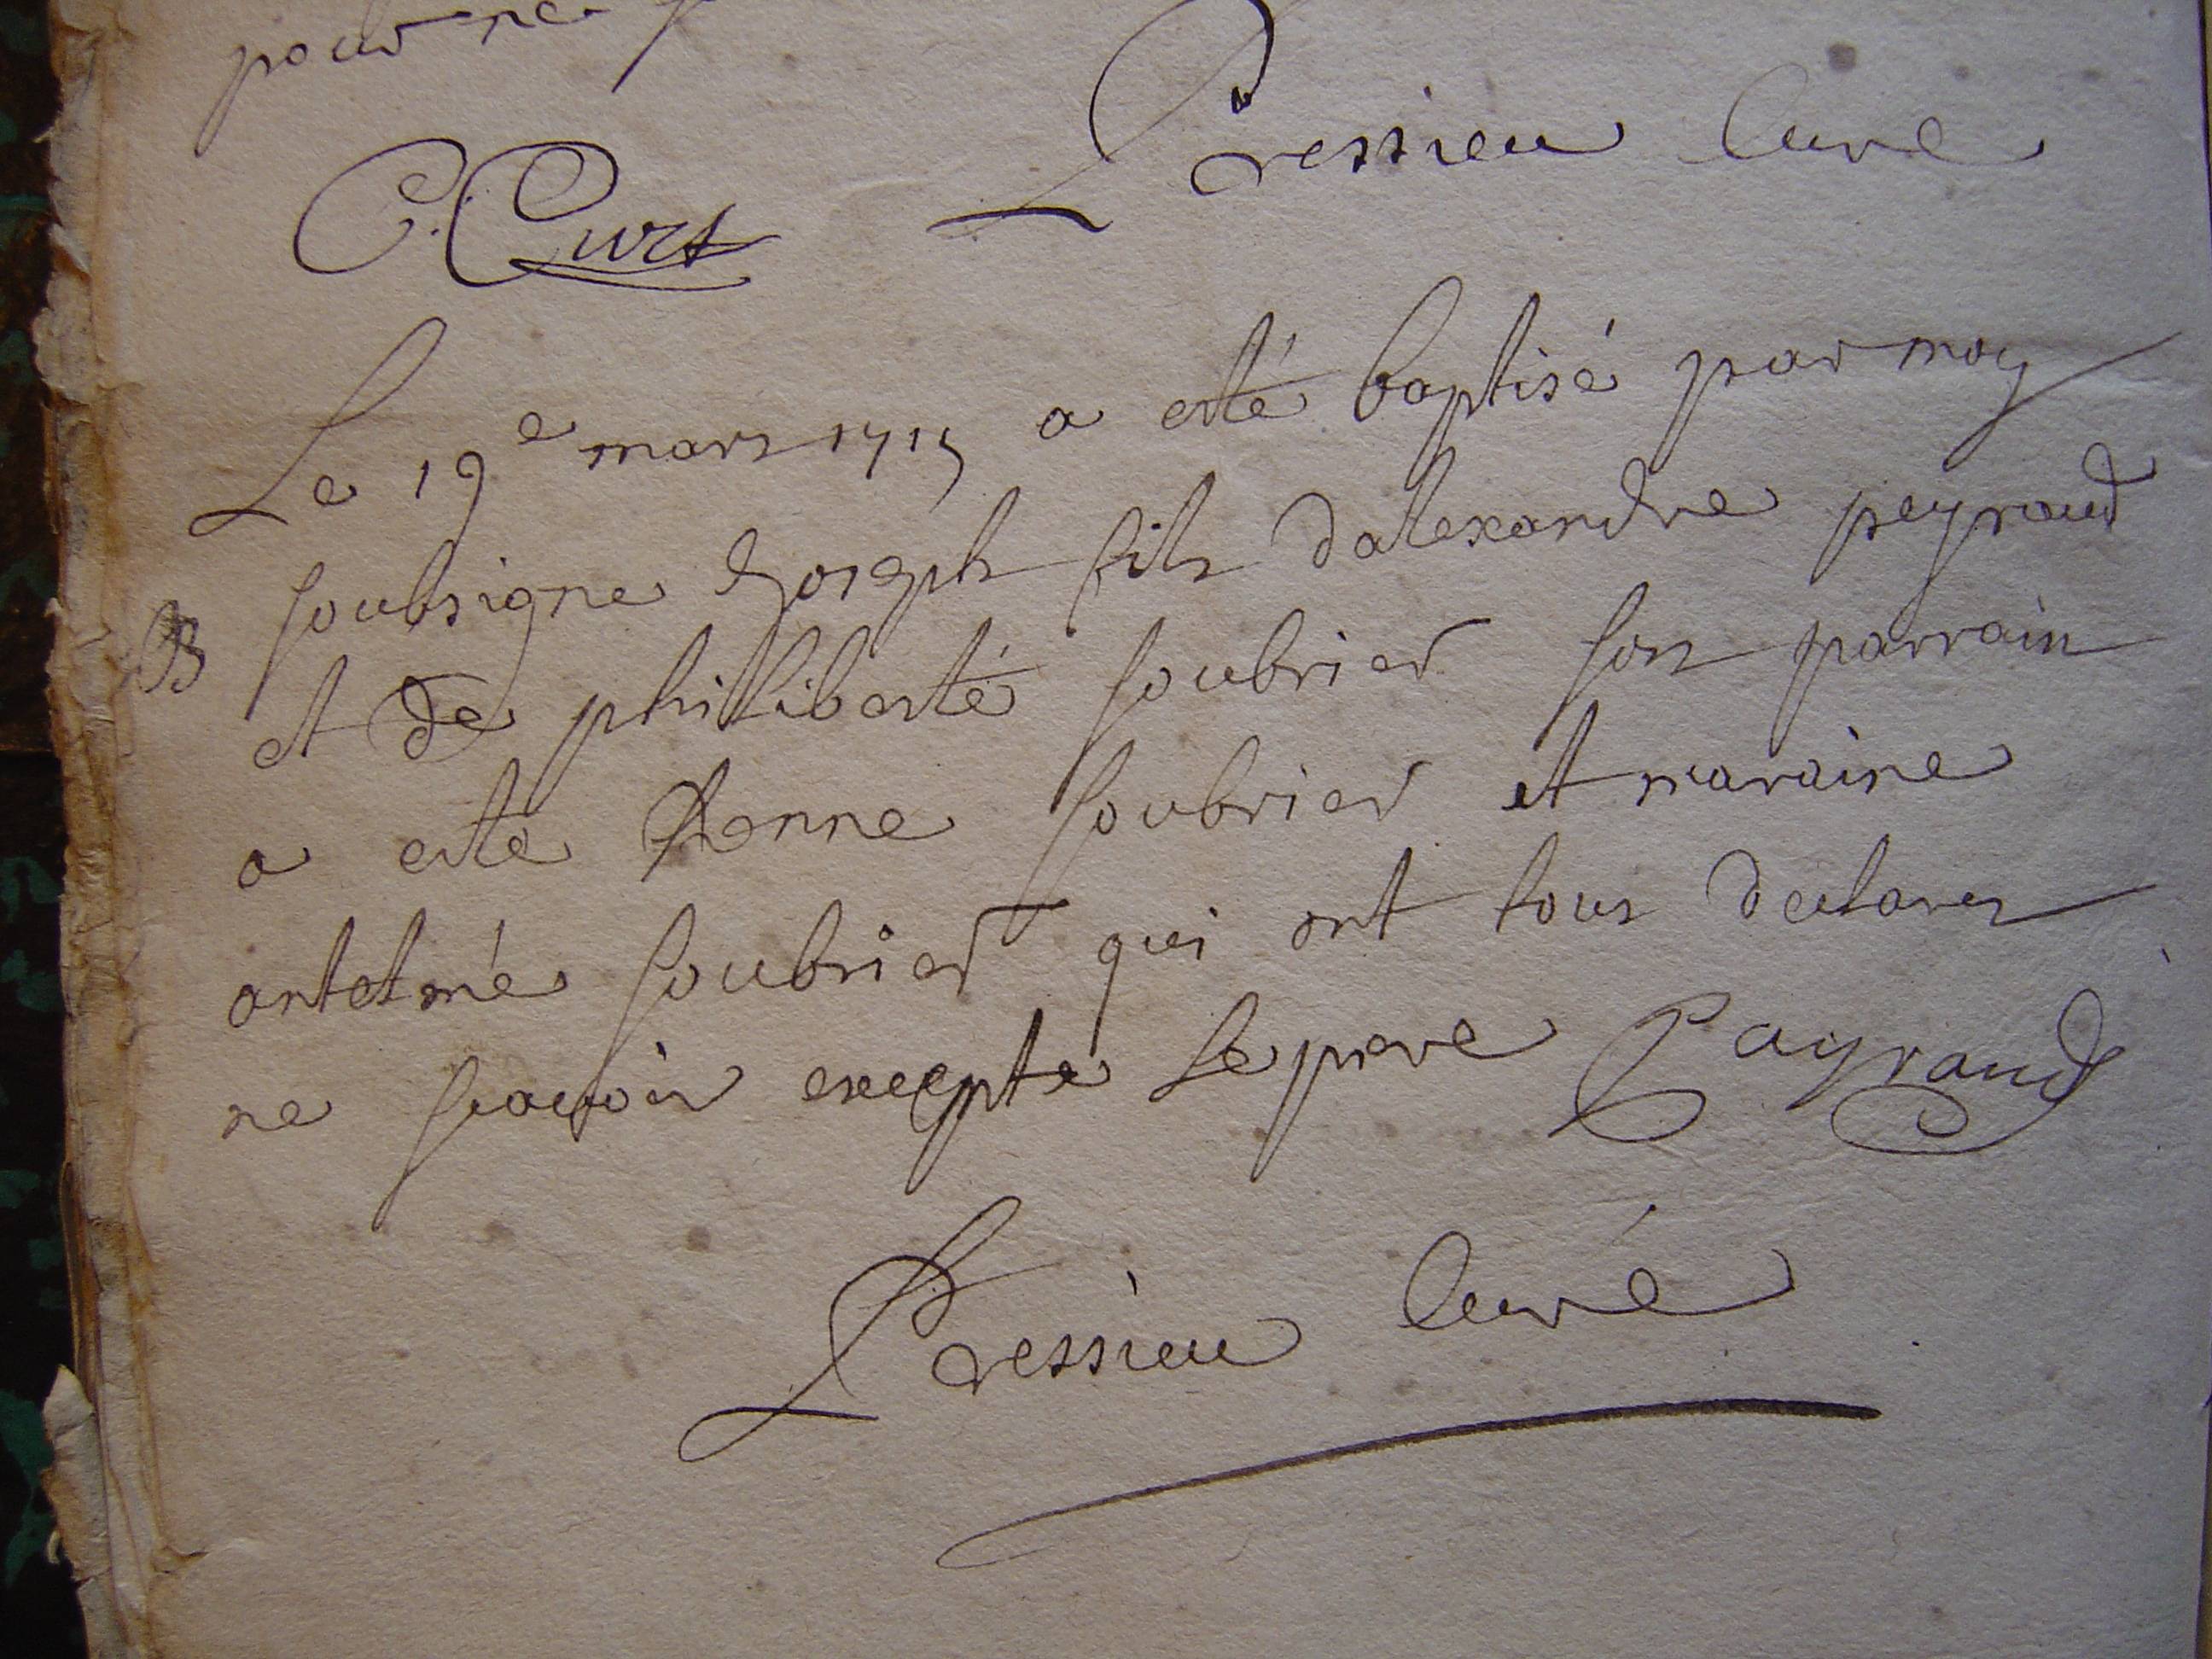 pour ne
Pressieu Cure
C. Curt
Le 19e mars 1715 a esté baptisé par moy
B soubsigne Joseph fils dalexandre peyraud
et de philiberte soubrier son parrain
a este soubrier et maraine
antelmé soubrier qui ont tous declares
ne scavoir excepté le pere Payraud
Pressieu Curé